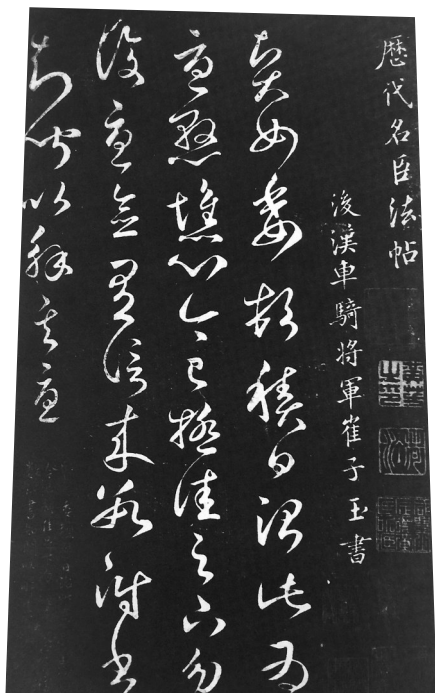 歷代名臣法帖
後漢車騎將軍崔子玉書
賢女委頓積日治此為
憂懸憔心今已極佳足下勿
復憂念有信來數附書
知聞以解其憂